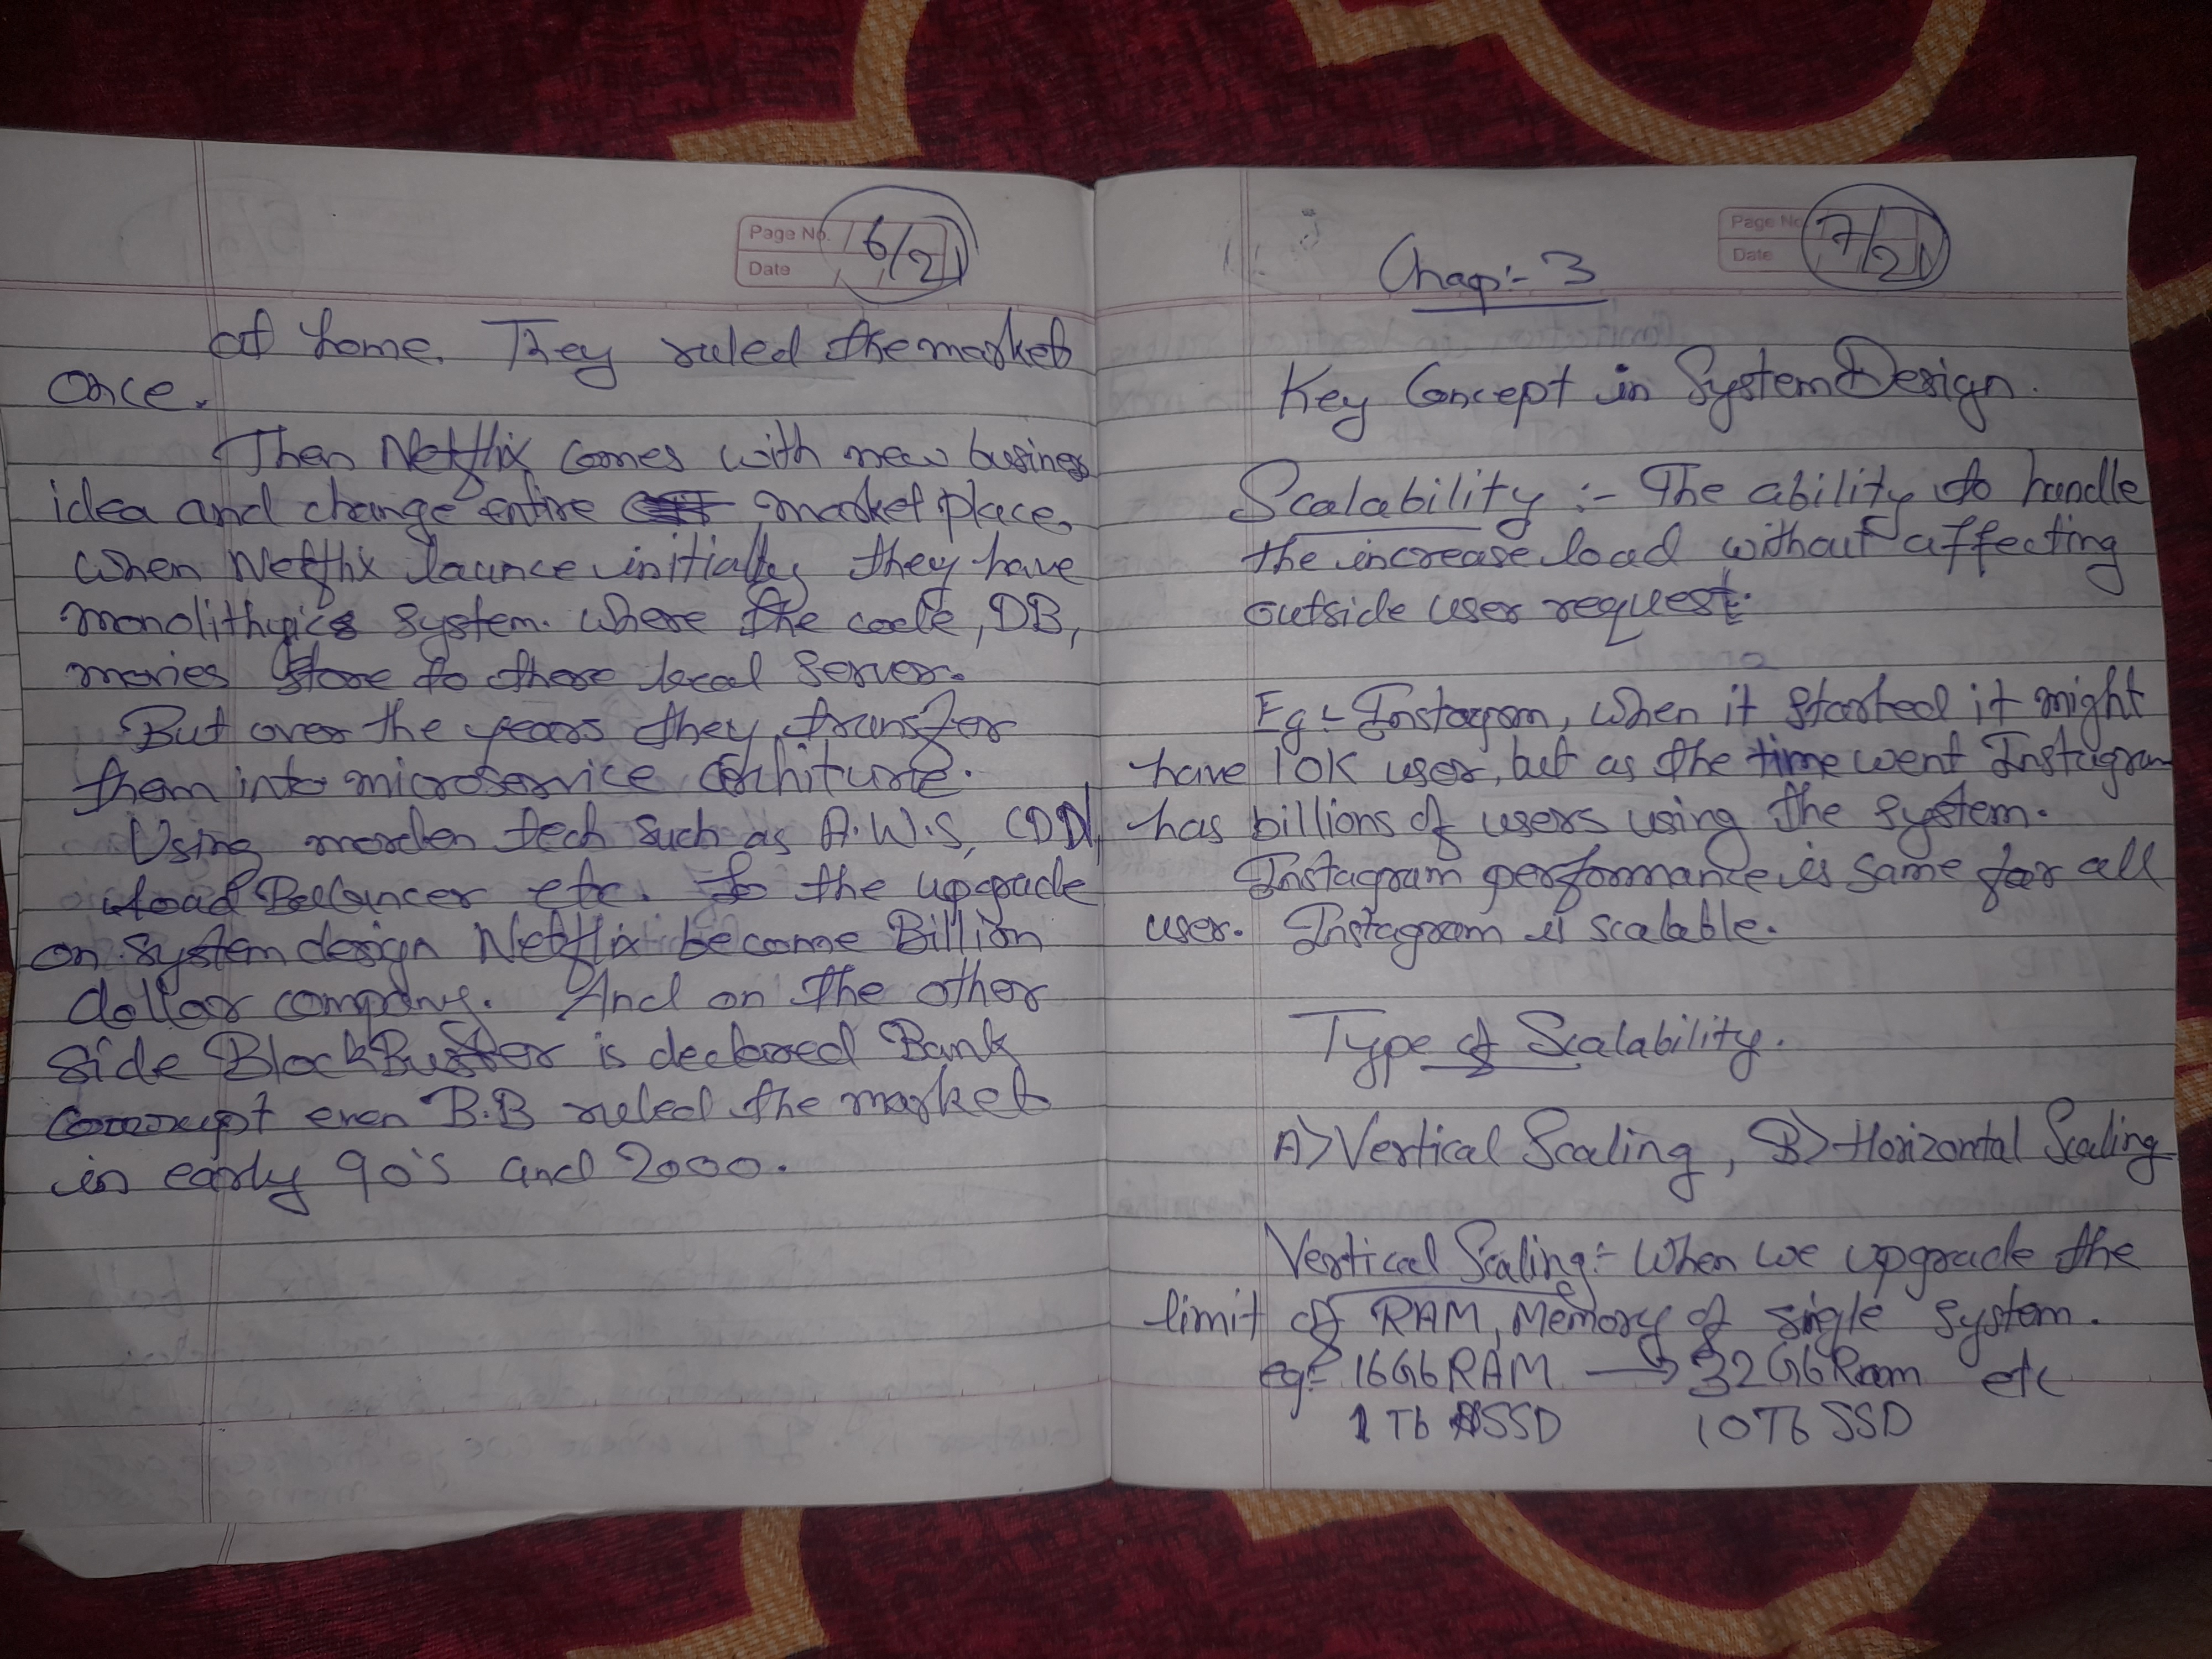 Page No. 6/21
Date
at home. They ruled the market
once.
Then Netflix comes with new business
idea and change entire market place.
when Netflix launce initially they have
monolithgics system. where the code, DB,
movies store to there local server.
But over the years they transfor
them into microservice Arhiture.
Using morden tech such as A.W.S, CDN,
load Balancer etc. To the upgrade
on system design Netflix become Billion
dollar company. And on the other
side BlockBuster is declared Bank
even B.B ruled the market
in early 90's and 2000.
Page No. 7/21
Date
Chap:- 3
Key Concept in System Design.
Scalability :- The ability to handle
the increase load without affecting
outside user request.
Eg:- Instagram, when it started it might
have 10k user, but as the time went Instagram
has billions of users using the system.
Instagram performance is same for all
user. Instagram is scalable.
Type of Scalability.
A> Vertical Scaling, B> Horizontal Scaling
Vertical Scaling:- When we upgrade the
limit of RAM, Memory of single system.
eg:- 16Gb RAM → 32Gb Ram etc
1Tb SSD 10Tb SSD